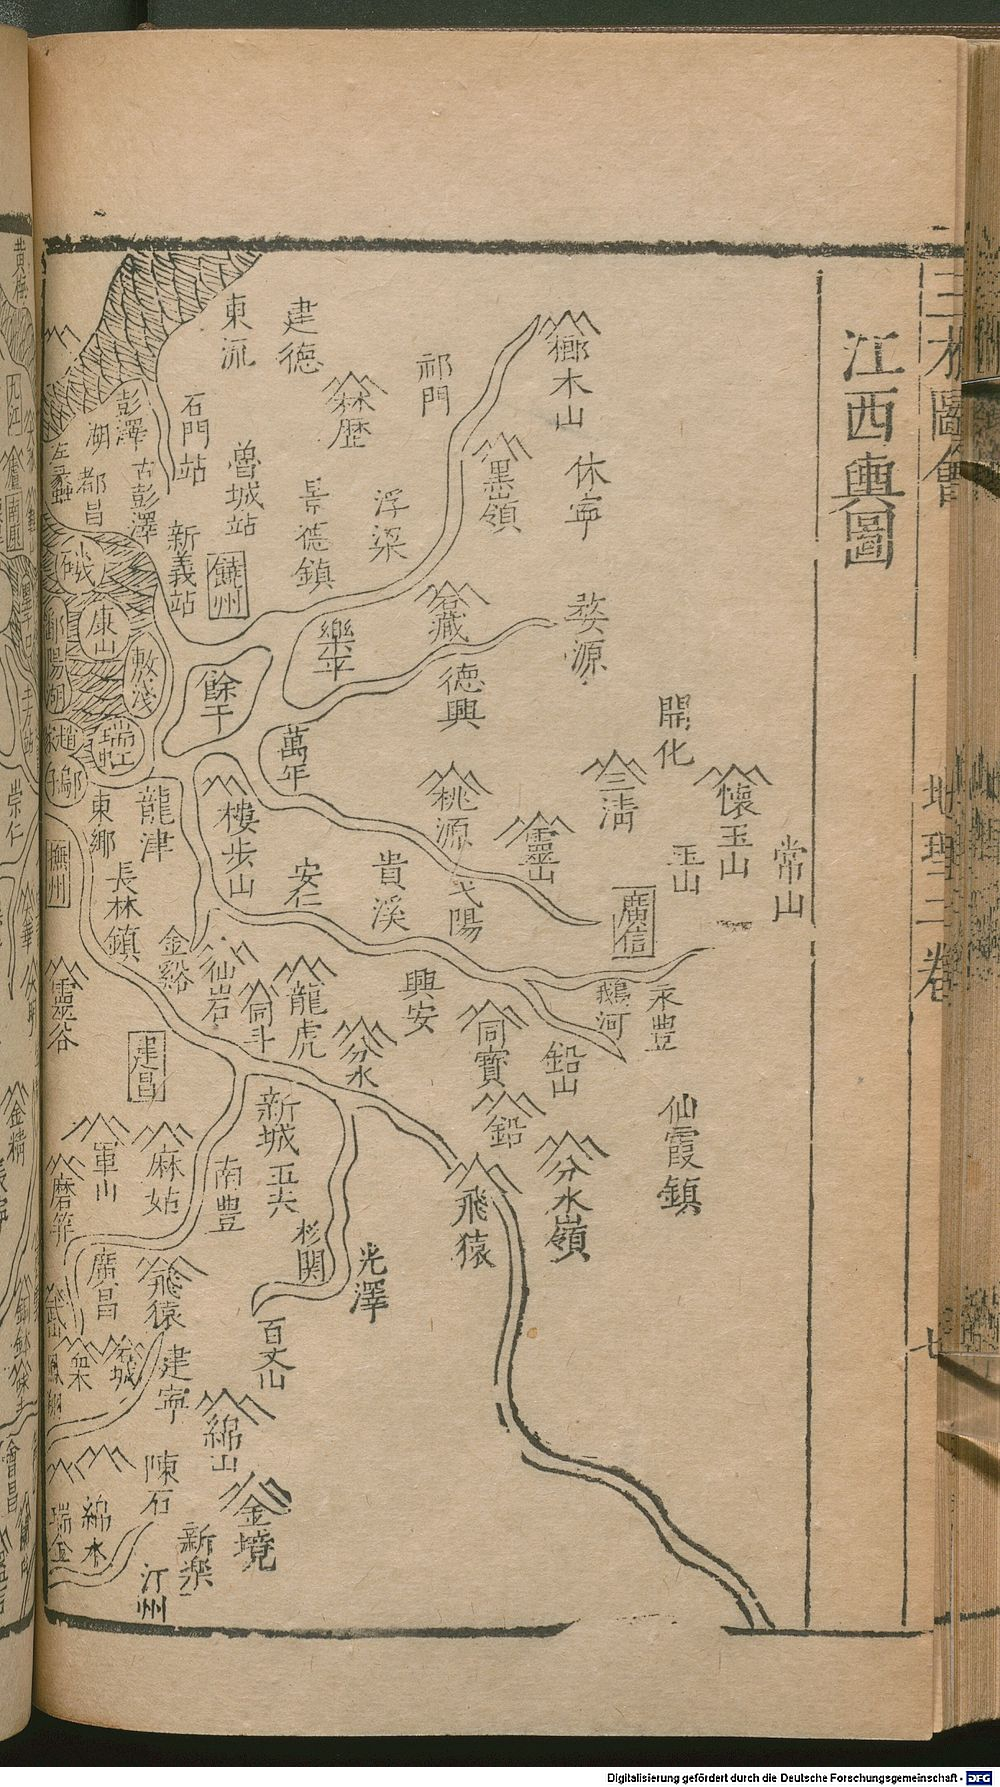 江西輿圖
地理三卷
七
常山
懷玉山
玉山
開化
廣信
永豐
仙霞鎮
三清
鵝河
休寧
婺源
木山
靈山
鉛山
分水嶺
墨嶺
祁門
藏
德興
桃源
弋陽
銅寶
鉛
飛猿
浮梁
貴溪
興安
分水
光澤
建德
歷
景德鎮
樂平
萬年
安仁
龍虎
新城
五夫
杉関
百丈山
東流
曾城站
饒州
餘干
樓步山
仙岩
南豊
綿山
金境
石門站
新義站
龍津
金谿
建昌
麻姑
飛猿
建寧
陳石
新樂
汀州
彭澤
古彭澤
湖
都昌
康山
瑞虹
東鄉
長林鎮
軍山
廣昌
綿水
鄱陽湖
撫州
靈谷
瑞金
黃梅
九江
崇仁
金精
會昌
Digitalisierung gefördert durch die Deutsche Forschungsgemeinschaft - DFG